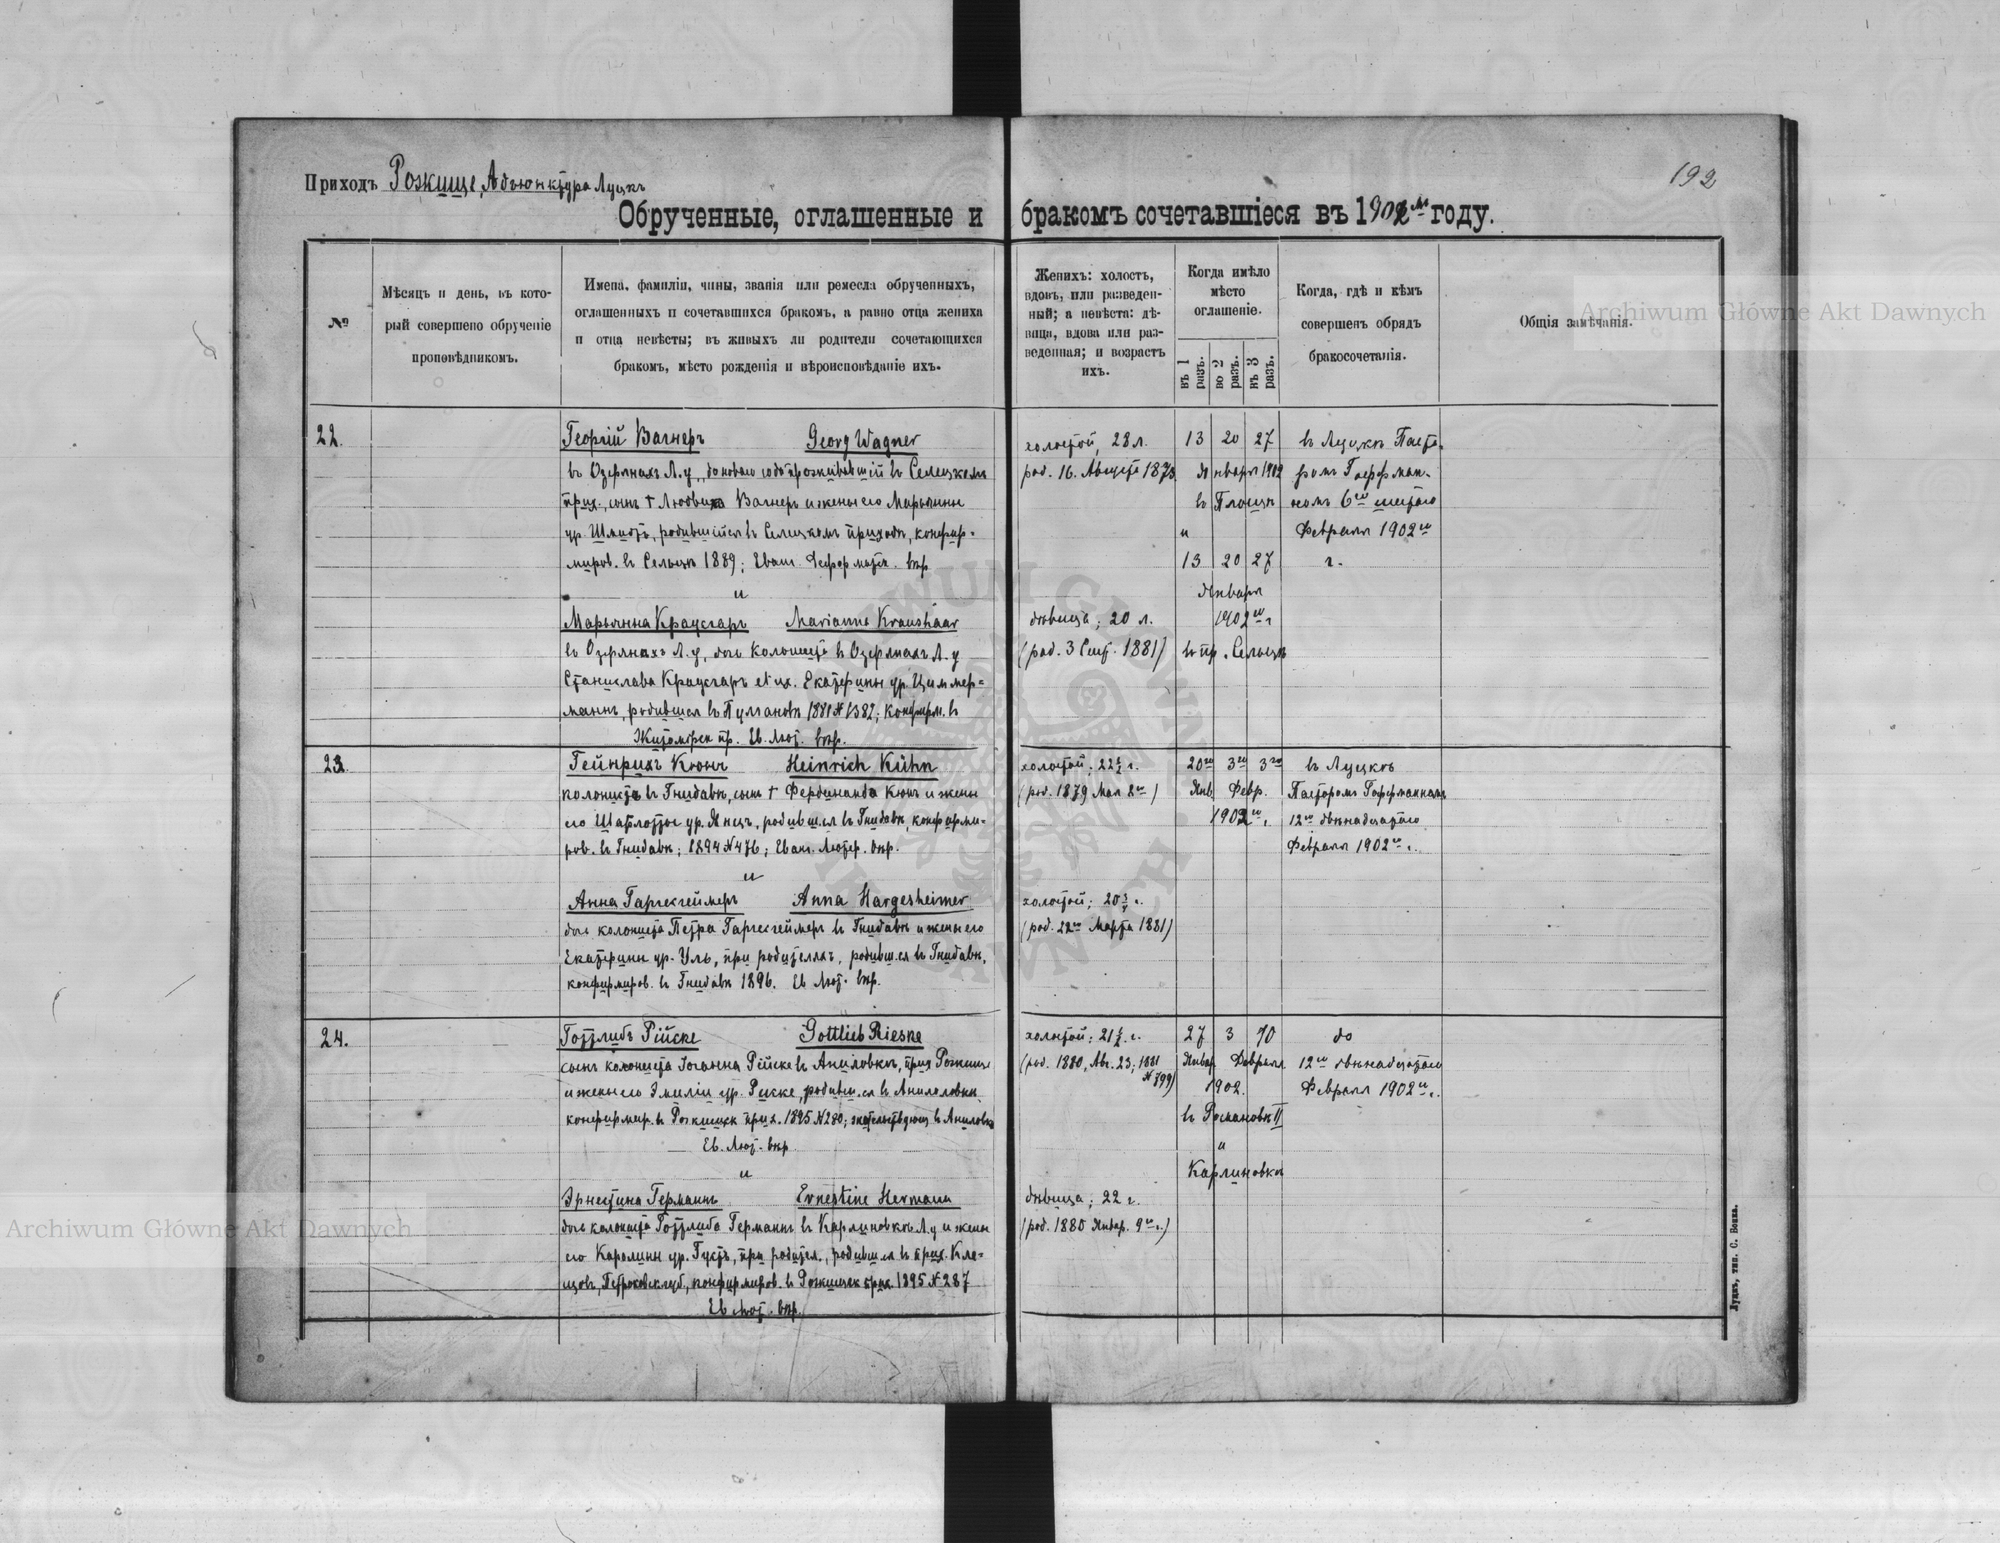 Приходъ Рожище, Адъюнктура Луцкъ
192
Обрученные, оглашенные и бракомъ сочетавшіеся въ 1902м году.
№
Мѣсяцъ и день, въ кото-
рый совершено обрученіе
проповѣдникомъ.
Имена, фамиліи, чины, званія или ремесла обрученныхъ,
оглашенныхъ и сочетавшихся бракомъ, а равно отца жениха
и отца невѣсты; въ живыхъ ли родители сочетающихся
бракомъ, мѣсто рожденія и вѣроисповѣданіе ихъ.
Женихъ: холостъ,
вдовъ, или разведен-
ный; а невѣста: дѣ-
вица, вдова или раз-
веденная; и возрастъ
ихъ.
Когда имѣло
мѣсто
оглашеніе.
въ 1 разъ.
во 2 разъ.
въ 3 разъ.
Когда, гдѣ и кѣмъ
совершенъ обрядъ
бракосочетанія.
Общія замѣчанія.
22.
Георгій Вагнеръ Georg Wagner
въ Озерянахъ Л.у., до новаго года проживавшій въ Селецкомъ
прих., сынъ † Людвига Вагнеръ и жены его Марьянны
ур. Шмидтъ, родившійся въ Селецкомъ приходѣ, конфир-
миров. въ Сельцѣ 1889; Еванг. Реформатск. вѣр.
и
Марьянна Краусгаръ Marianne Kraushaar
въ Озерянахъ Л.у, дочь колониста въ Озерянахъ Л.у
Станислава Краусгаръ et ux. Екатерины ур. Циммер-
маннъ, родившаяся въ 1881 № 1382; конфирм. въ
Житомірск пр. Ев. Лют. вѣр.
холостой, 28 л.
род. 16. Августа 1873
дѣвица; 20 л.
(род. 3 Сент. 1881)
13 20 27
Января 1902
въ
и
13 20 27
Января
1902го г.
въ пр. Сельцѣ
въ Луцкѣ Пасто-
ромъ Гоффман-
номъ 6го шестаго
Февраля 1902го
г.
23.
Гейнрихъ Кюнъ Heinrich Kühn
колониста въ Гнидавѣ, сынъ † Фердинанда Кюнъ и жены
его Шарлотты ур. Янцъ, родивш.ся въ Гнидавѣ, конфирми-
ров. въ Гнидавѣ; 1894 № 476; Еванг. Лютер. вѣр.
и
Анна Гаргесгеймеръ Anna Hargesheimer
дочь колониста Петра Гаргесгеймеръ въ Гнидавѣ и жены его
Екатерины ур. Уль, при родителяхъ, родивш.ся въ Гнидавѣ,
конфирмиров. въ Гнидавѣ 1896. Ев Лют. вѣр.
холостой; 22
(род. 1879 Мая 2го)
холостой; 20
(род. 22го Марта 1881)
20го 3го 3го
Янв. Февр.
1902го г.
въ Луцкѣ
Пасторомъ Гофманномъ
12го двѣнадцатаго
Февраля 1902го г.
24.
Готтлибъ Рійске Gottlieb Rieske
сынъ колониста Іоганна Рійске въ Аниловкѣ, прих Рожище
и жены его Эмиліи ур. Рикке, родивш.ся въ
конфирмир. въ Рожищск прих. 1895 № 280; жительствующ въ Аниловкѣ
Ев. Лют. вѣр
и
Эрнестина Германнъ Ernestine Hermann
дочь колониста Готтлиба Германнъ въ Карлиновкѣ Л.у и жены
его Каролины ур. Густъ, при родител., родивш.ся въ прих. Кле-
щовъ, Петроковск губ, конфирмиров. въ Рожищск прих 1895 № 287
Ев Лют. вѣр.
холостой; 21
(род. 1880, Авг. 23; 1881
№ 799)
дѣвица; 22 г.
(род. 1880 Январ. 9го г.)
27 3 10
Январ Февраля
1902.
въ Романовкѣ II
и
Карлиновкѣ
do
12го двѣнадцатаго
Февраля 1902го г.
Луцкъ, тип. С. Бокка.
Archiwum Główne Akt Dawnych
Archiwum Główne Akt Dawnych